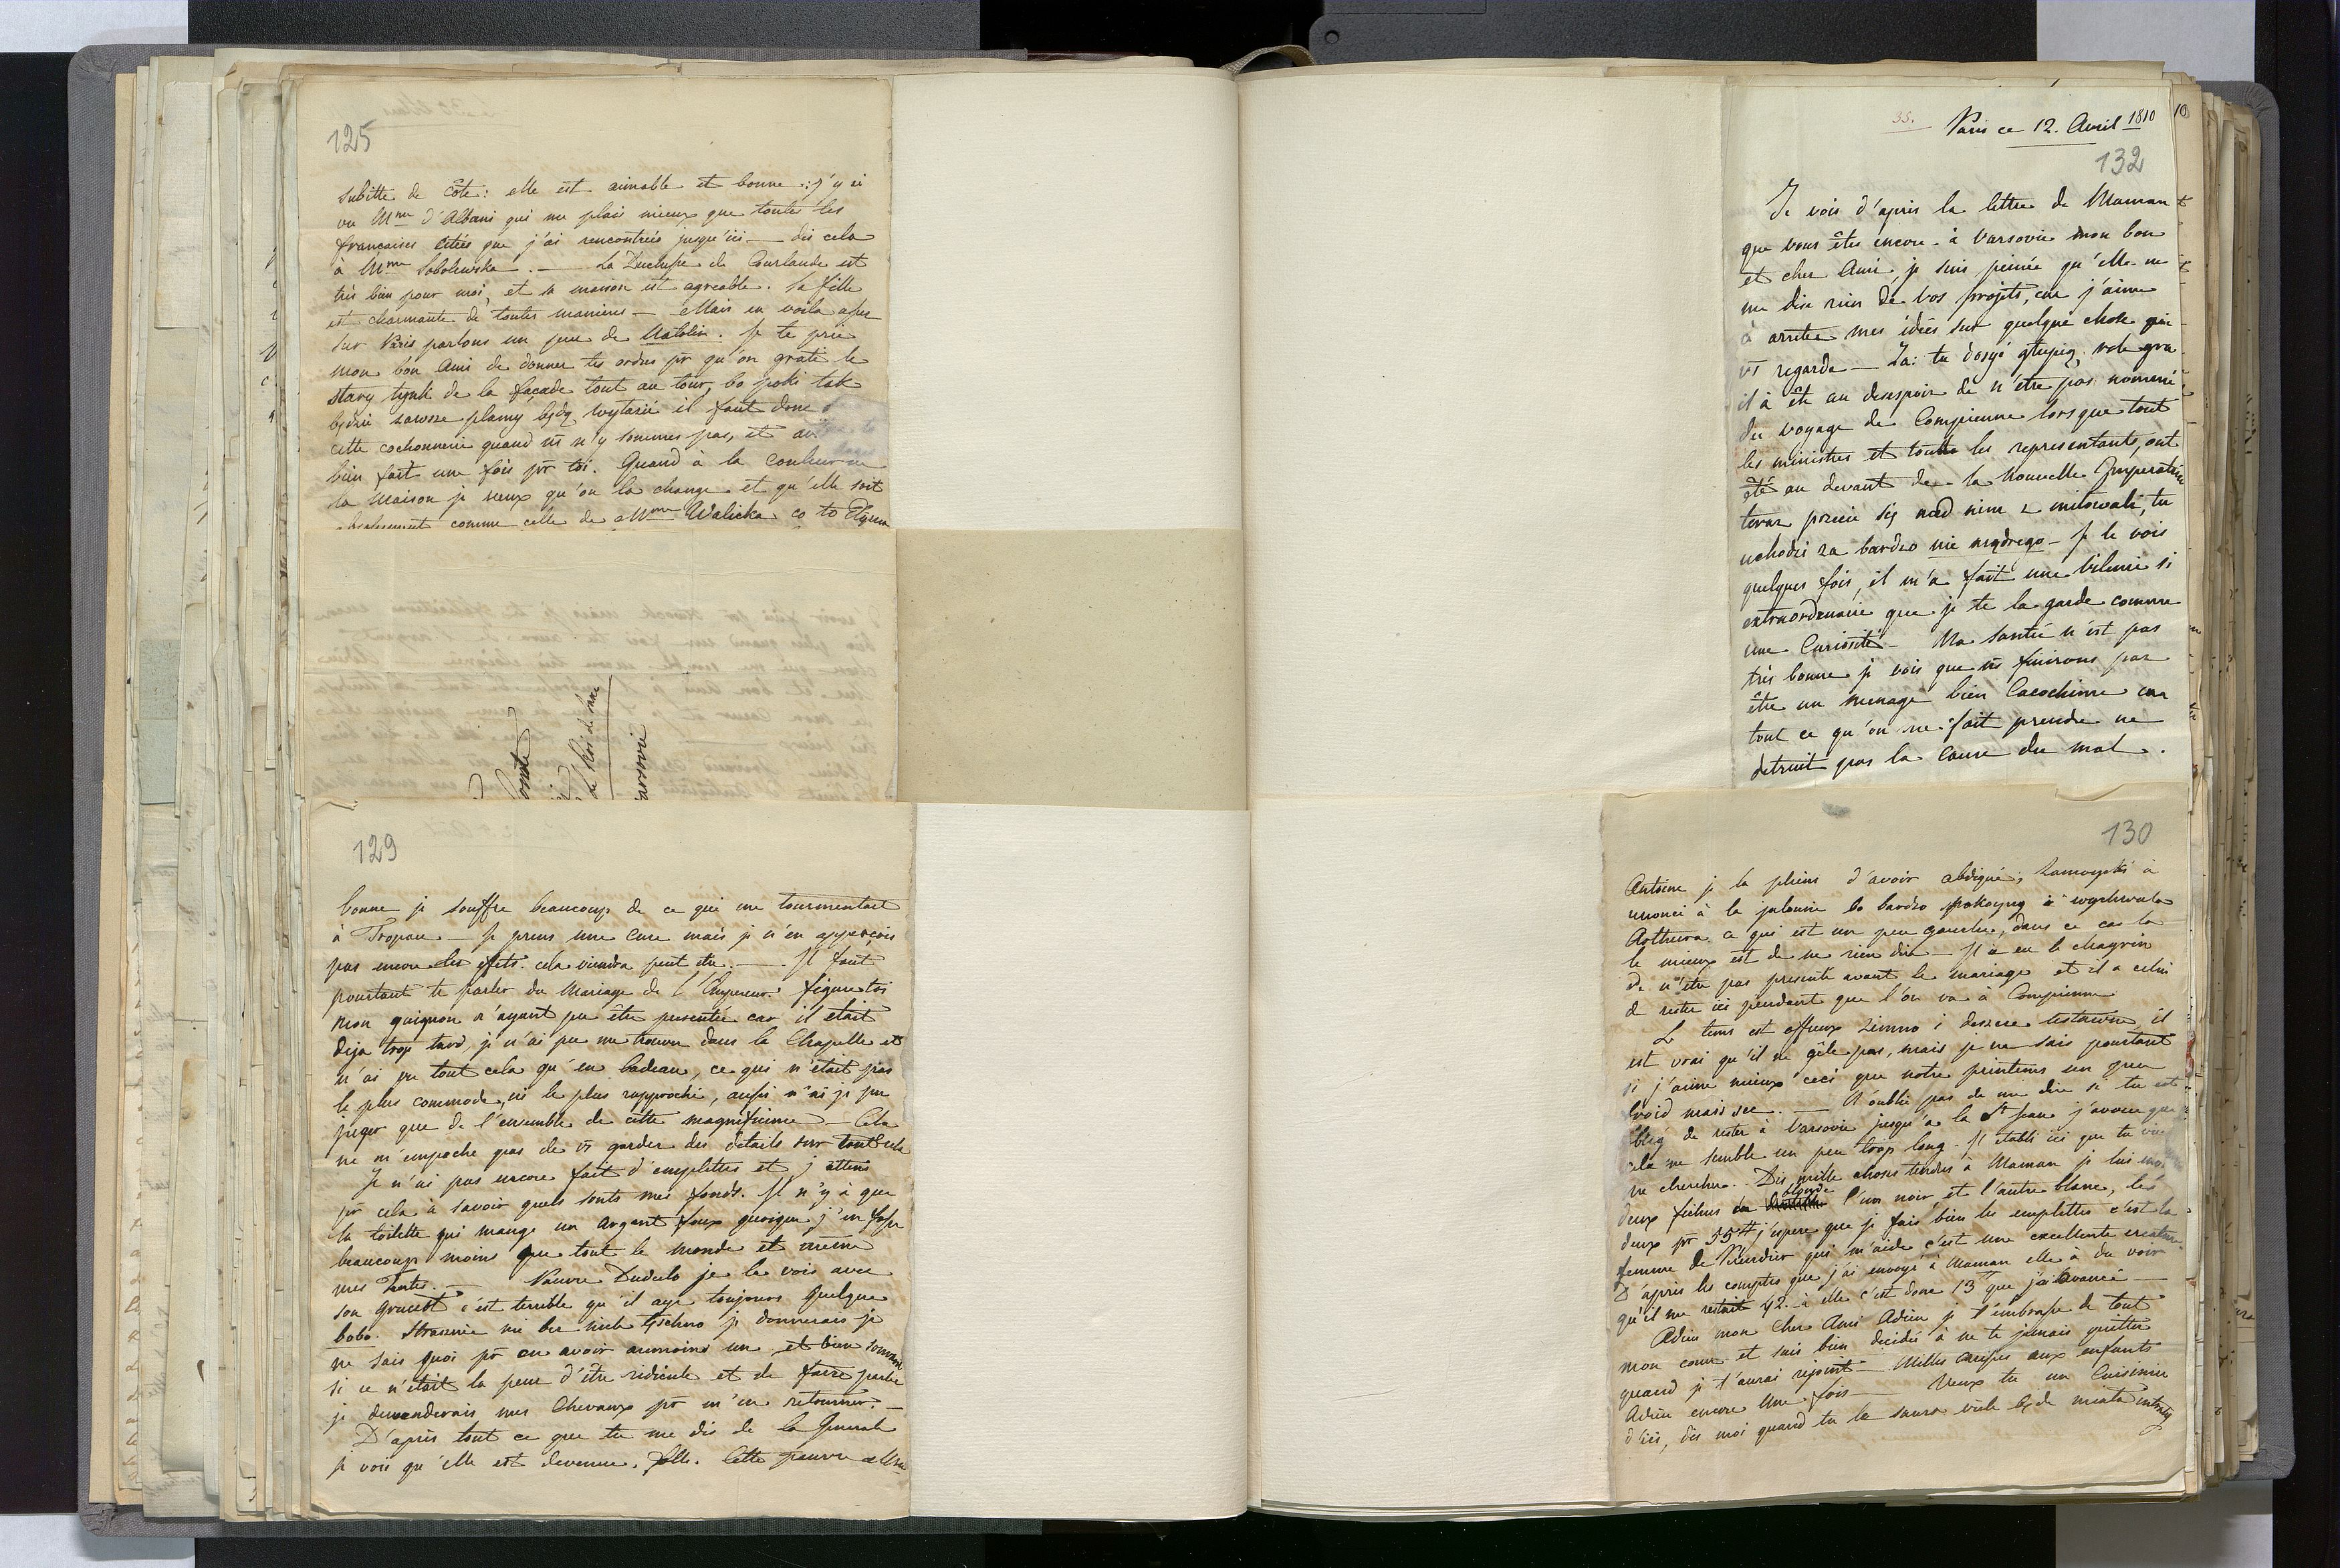 125
subitte de côté: elle est aimable et bonne: j'y ai
vu Mme d'Albani qui me plais mieux que toutes les
francaises citées que j'ai rencontrées jusqu'ici — dis cela
à Mme Sobolewska. — La Duchesse de Courlande est
très bien pour moi, et sa maison est agreable. Sa fille
est charmante de toutes manieres — Mais en voila assez
sur Paris parlons un peu de Natolin. Je te prie
mon bon Ami de donner tes ordres pr qu'on grate le
stary tynk de la façade tout au tour, bo poki tak
będzie zawsze plamy będą il faut donc
cette cochonnerie quand ns n'y sommes pas, et
bien fait une fois pr toi. Quand à la couleur
la maison je veux qu'on la change et qu'elle soit
absolument comme celle de Mme Walicka co to
Comte
Le Roi de Saxe
Varsovie
129
bonne je souffre beaucoup de ce qui me tourmentait
à Tropau — Je prens une cure mais je n'en apperçois
pas encore les effets. cela viendra peut etre. — Il faut
pourtant te parler du Mariage de l'Empereur. figure toi
mon guignon n'ayant pu être presentée car il était
deja trop tard, je n'ai pu me trouver dans la Chapelle et
n'ai vu tout cela qu'en badeau, ce qui n'était pas
le plus commode, ni le plus rapproché, aussi n'ai je pu
juger que de l'ensemble de cette magnificence — Cela
ne m'empeche pas de vs garder des details sur tout cela
Je n'ai pas encore fait d'emplettes et j'attens
pr cela à savoir quels sonts mes fonds. Il n'y à que
la toilette qui mange un argent foux quoique j'en fasse
beaucoup moins que tout le monde et même
mes Tantes. — Pauvre Dudulo je le vois avec
son c'est terrible qu'il aye toujours quelque
bobo. Strasznie mi bez nich tęschno je donnerais je
ne sais quoi pr en avoir aumoins un et bien souvent
si ce n'était la peur d'être ridicule et de faire parler
je demanderais mes Chevaux pr m'en retourner. —
D'après tout ce que tu me dis de la Generale
je vois qu'elle est devenue folle. Cette pauvre Mme
35. Paris ce 12. Avril 1810
10
132
Je vois d'après la lettre de Maman
que vous êtes encore à Varsovie mon bon
et cher Ami, je suis peinée qu'elle ne
me dise rien de vos projets, car j'aime
à arrêter mes idées sur quelque chose qui
vs regarde — Za: tu dosyć głupią role gra
il à été au desespoir de n'etre pas nommé
du voyage de Compienne lorsque tout
les ministres et toutte les representants, ont
été au devant de la Nouvelle Imperatrice
teraz przecie się nad nim zmitowali, tu
uchodzi za bardzo nie mądrego — Je le vois
quelques fois, il m'a fait une vilenie si
extraordinaire que je te la garde comme
une Curiosité — Ma santé n'est pas
très bonne je vois que ns finirons par
être un menage bien Cacochime car
tout ce qu'on me fait prendre ne
detruit pas la cause du mal.
130
Antoine je la plains d'avoir abdiqué; Zamoyski à
renoncé à la jalousie bo bardzo spokoyny i wychwala
Arthura ce qui est un peu gauche, dans ce cas là
le mieux est de ne rien dire — Il a eu le chagrin
de n'etre pas presenté avant le mariage et il a celui
de rester ici pendant que l'on va à Compienne
Le tems est affreux zimno i deszcze ustawne il
est vrai qu'il ne gêle pas, mais je ne sais pourtant
si j'aime mieux ceci que notre printems un peu
froid mais sec. — N'oublie pas de me dire si tu est
obligé de rester à Varsovie jusqu'à la St Jean j'avoue que
cela me semble un peu trop long — Il établi ici que tu viens
me chercher. Dis mille choses tendres à Maman je lui envoye
deux fichus en blonde l'un noir et l'autre blanc, les
deux pr 55# j'espere que je fais bien les emplettes c'est la
femme de qui m'aide c'est une excellente creature
D'après les comptes que j'ai envoyé à Maman elle à du voir
qu'il me restait 42. à elle c'est donc 13# que j'ai avancé —
Adieu mon cher Ami Adieu je t'embrasse de tout
mon cœur et suis bien decidée à ne te jamais quitter
quand je t'aurai rejoint — Milles caresses aux enfants
Adieu encore une fois — Veux tu un Cuisinier
d'ici, dis moi quand tu le saura wiele będe miała